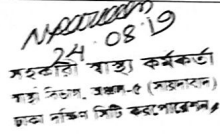 24.08.19
সহকারী স্বাস্থ্য কর্মকর্তা
স্বাস্থ্য বিভাগ, অঞ্চল-৫ (সায়েদাবাদ)
ঢাকা দক্ষিণ সিটি কর্পোরেশন